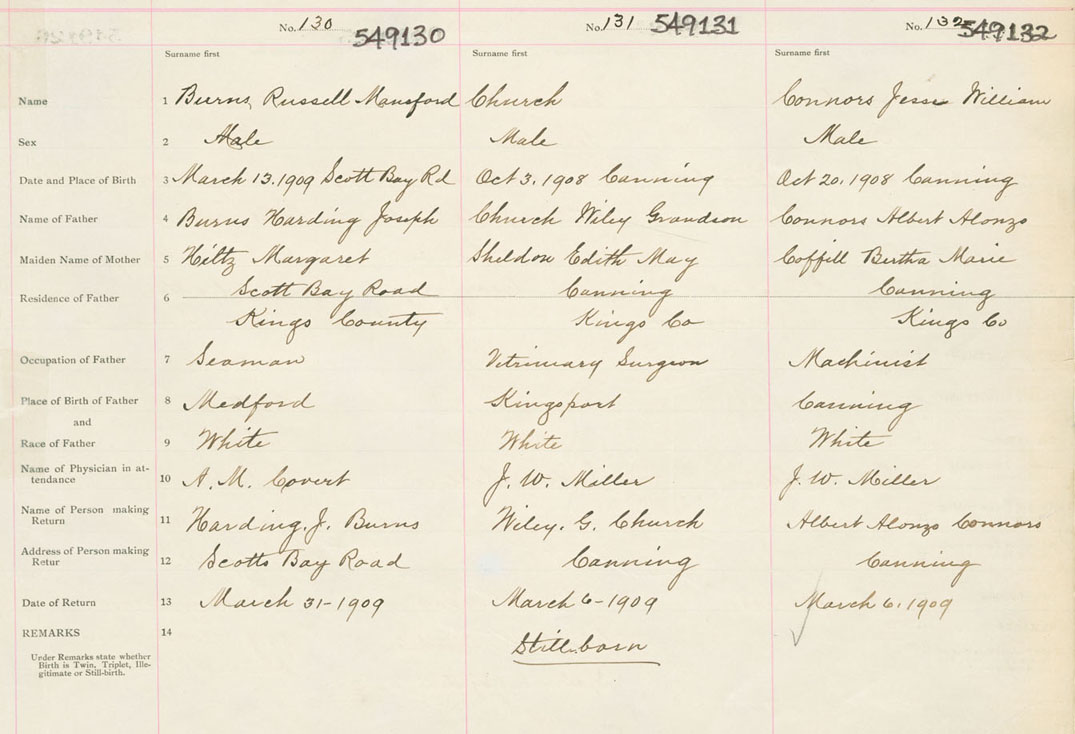 No. 130 549130 No. 131 549131 No. 132 549132
Surname first Surname first Surname first
Name 1 Burns, Russell Mansford Church Connors Jesse William
Sex 2 Male Male Male
Date and Place of Birth 3 March 13, 1909 Scott Bay Rd Oct 3, 1908 Canning Oct 20, 1908 Canning
Name of Father 4 Burns Harding Joseph Church Wiley Grandson Connors Albert Alonzo
Maiden Name of Mother 5 Hiltz Margaret Sheldon Edith May Coffill Bertha Marie
Residence of Father 6 Scott Bay Road Canning Canning
Kings County Kings Co Kings Co
Occupation of Father 7 Seaman Vitrinary Surgeon Machinist
Place of Birth of Father 8 Medford Kingsport Canning
and
Race of Father 9 White White White
Name of Physician in at-
tendance 10 A. M. Covert J. W. Miller J. W. Miller
Name of Person making
Return 11 Harding. J. Burns Wiley. G. Church Albert Alonzo Connors
Address of Person making
Retur 12 Scotts Bay Road Canning Canning
Date of Return 13 March 31-1909 March 6-1909 March 6, 1909
REMARKS 14
Still born
Under Remarks state whether
Birth is Twin, Triplet, Ille-
gitimate or Still-birth.